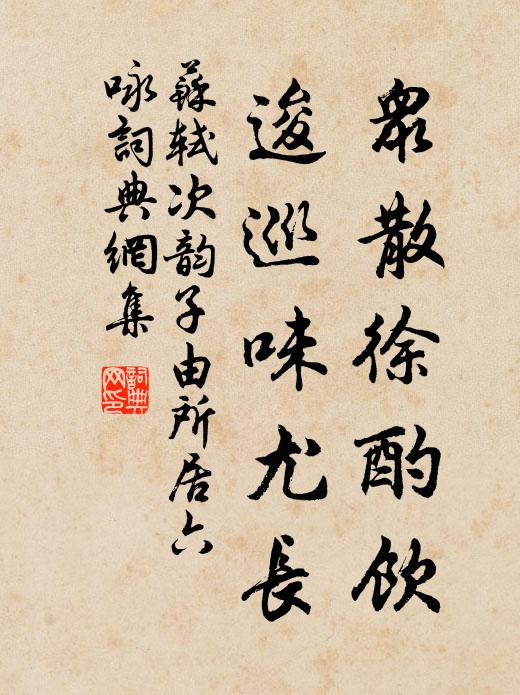 眾散徐酌飲
逡巡味尤長
蘇軾次韵子由所居六
咏詞典網集
詞典
网印